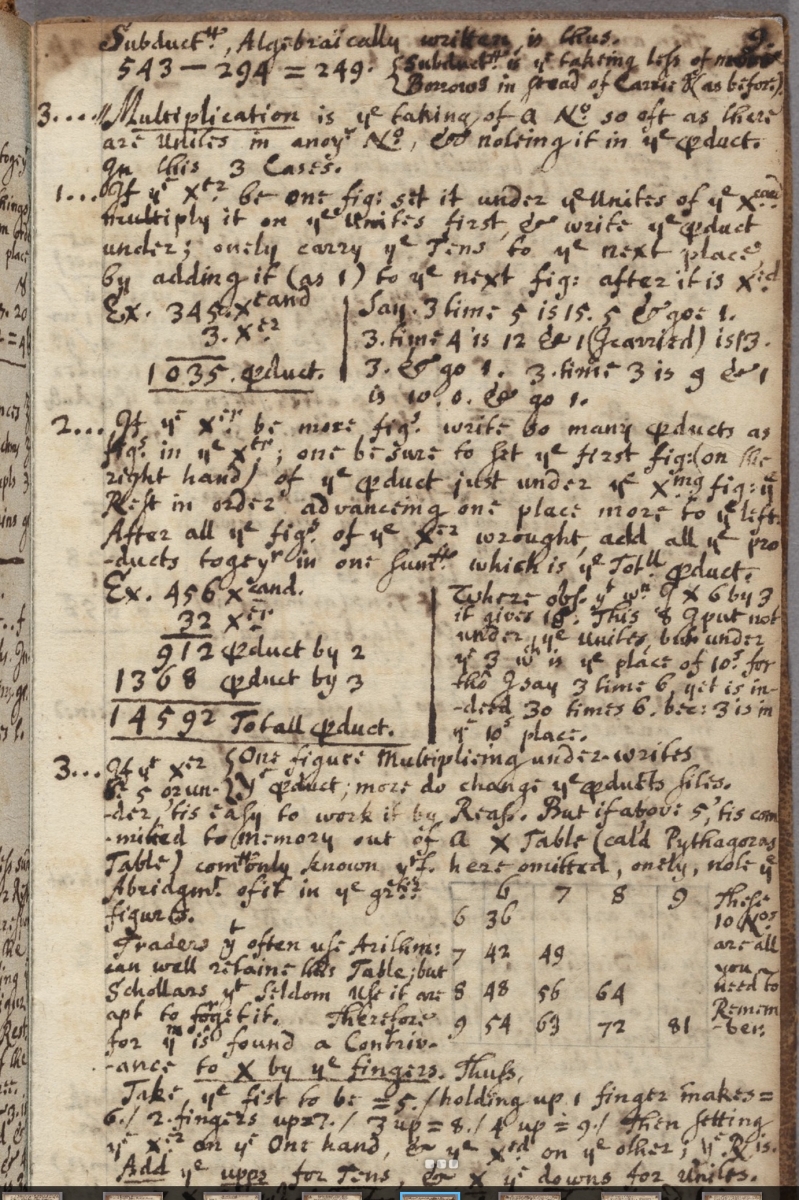 Subductⁿ, Algebraically written, is thus. 9
543 — 294 = 249. {Subductⁿ is yᵉ takeing less of more
{Borrows in stead of Carrie &c (as before)
3... Multiplication is yᵉ taking of a Nº so oft as there
are Unites in anoyʳ Nº, & noteing it in yᵉ ꝓduct.
In this 3 Cases.
1... If yᵉ Xᵉʳ be one fig: set it under yᵉ Unites of yᵉ Xᶜᵃⁿᵈ
multiply it on yᵉ Unites first, & write yᵉ ꝓduct
under; onely carry yᵉ Tens to yᵉ next place,
by adding it (as 1) to yᵉ next fig: after it is Xᵉᵈ
Ex. 345. Xᶜᵃⁿᵈ
3. Xᵉʳ
1035. ꝓduct.
Say. 3 time 5 is 15. 5 & goe 1.
3. time 4 is 12 & 1 (carried) is 13.
3. & go 1. 3. time 3 is 9 & 1
is 10. 0. & go 1.
2... If yᵉ Xᵉʳ be more figˢ. write so many ꝓducts as
figˢ in yᵉ Xᵉʳ; one be sure to set yᵉ first fig: (on the
right hand) of yᵉ ꝓduct just under yᵉ Xⁱⁿᵍ fig: yᵉ
Rest in order advancing one place more to yᵉ left.
After all yᵉ figˢ. of yᵉ Xᵉʳ wrought, add all yᵉ pro
-ducts togeyʳ in one Summ which is yᵉ Totˡˡ ꝓduct.
Ex. 456 Xᶜᵃⁿᵈ.
32 Xᵉʳ
912 ꝓduct by 2
1368 ꝓduct by 3
14592 Totall ꝓduct.
Where obs. yᵗ wⁿ I X 6 by 3
it gives 18. This 8 I put not
under yᵉ Unites, but under
yᵉ 3 wᶜʰ is yᵉ place of 10ˢ for
tho I say 3 time 6, yet is in-
-deed 30 times 6. bec: 3 is in
yᵉ 10ˢ place.
3... If yᵉ Xᵉʳ {One figure Multiplicing under-writes
be 5 or un- {yᵉ ꝓduct; more do change yᵉ ꝓducts
-der, 'tis easy to work it by Reas. But if above 5, 'tis com
-mited to Memory out of a X Table (cald Pythagoras
Table) com̄only known yʳf. here omitted, onely, note yᵉ
Abridgmᵗ. of it in yᵉ
figures.
Traders yᵗ often use Arithm:
can well retaine this Table; but
Schollars yᵗ Seldom Use it are
apt to forget it. Therefore
for yᵐ is found a Contriv-
-ance to X by yᵉ fingers. Thus.
6 7 8 9
6 36
7 42 49
8 48 56 64
9 54 63 72 81
These
10 Nºˢ
are all
you
need to
Remem
-ber.
Take yᵉ fist to be = 5. / holding up 1 finger makes =
6. / 2. fingers up = 7. / 3 up = 8. / 4 up = 9. / then setting
yᵉ Xᵉʳ on yᵉ One hand, & yᵉ Xᵉᵈ on yᵉ other; yᵉ R is.
Add yᵉ upps for Tens, & X yᵉ downs for Unites.